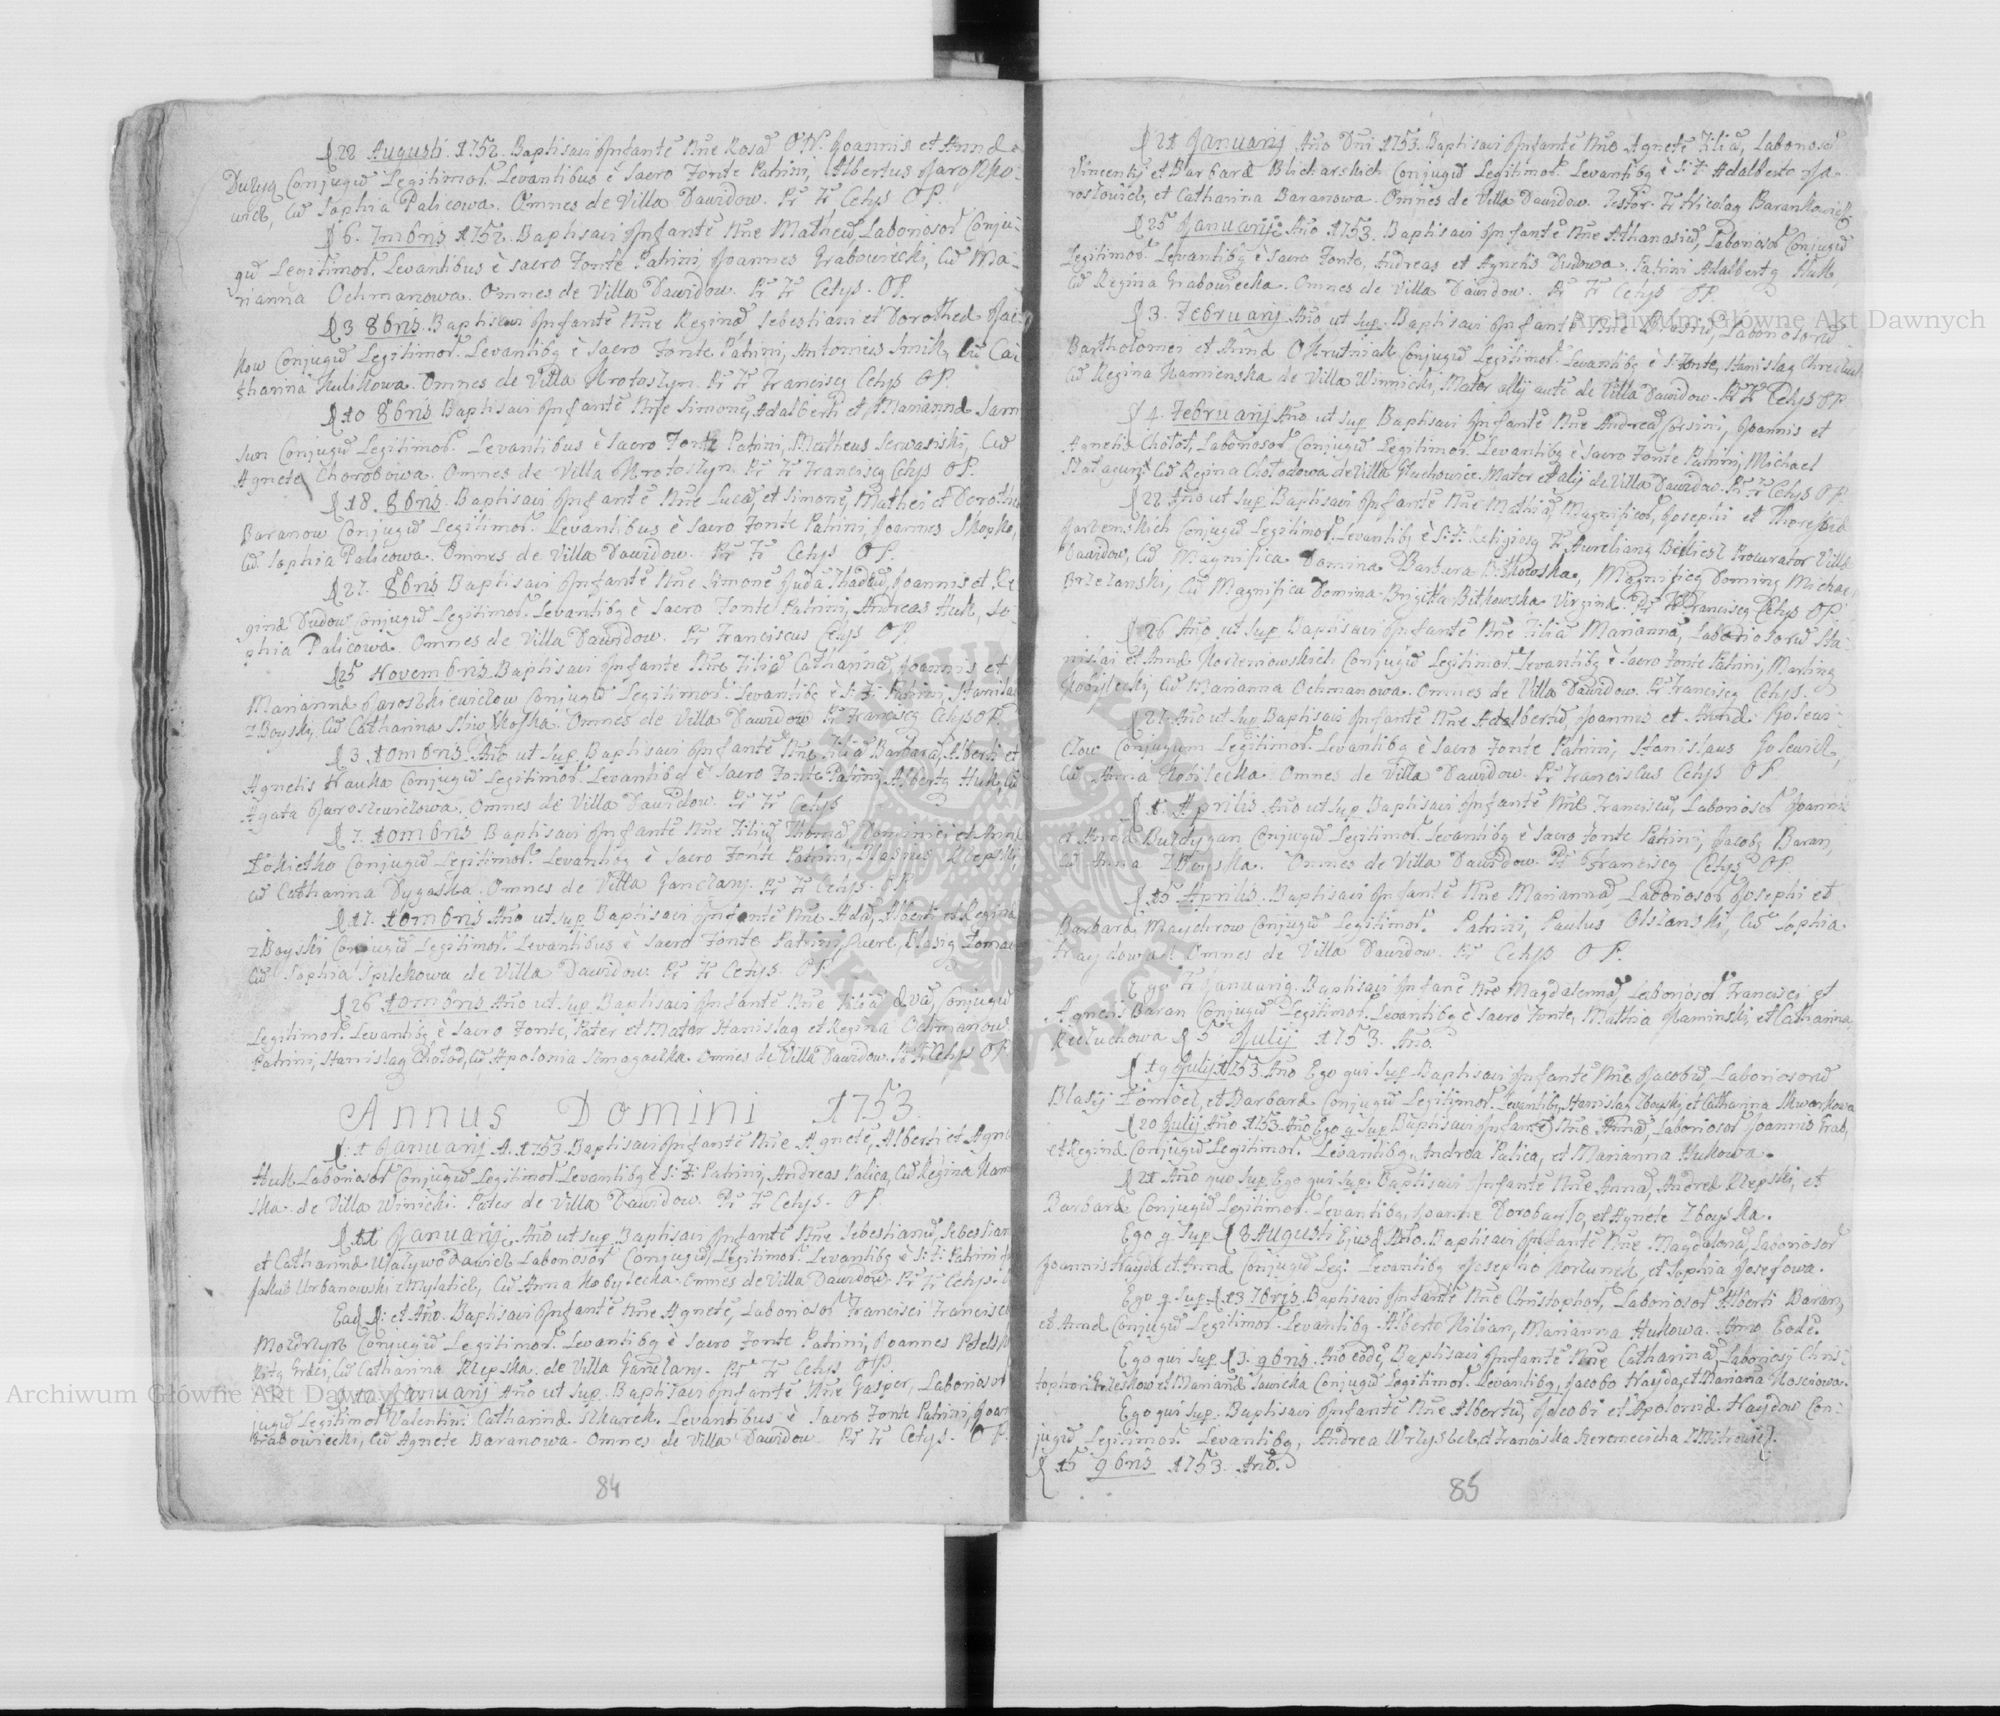 22 Augusti 1752. Baptisavi Infantē Nñe Rosā O.N. Joannis et Annæ
Conjugū Legitimor. Levantibus è Sacro Fonte Patrini, Albertus Jaroszko-
wicz, cū Sophia Palicowa. Omnes de Villa Dawidow. Pr Fr Cetys OP.
6. 7mbris 1752. Baptisavi Infantē Nñe Matheū, Laboriosor Conju-
gū Legitimor. Levantibus è sacro Fonte Patrini, Joannes Grabowiecki, cū Ma-
rianna Ochmanowa. Omnes de Villa Dawidow. Pr Fr Cetys. OP.
3 8bris. Baptisavi Infantē Nñe Reginā, Sebestiani et Dorotheæ
Conjugū Legitimor. Levantibq è Sacro Fonte Patrini, Antonius Smik, cū Ca-
tharina Kulikowa. Omnes de Villa Krotoszyn. Pr Fr Franciscq Cetys OP.
10 8bris Baptisavi Infantē Nñe Simonē, Adalberti et Mariannæ
Conjugū Legitimor. Levantibus è Sacro Fonte Patrini, Matheus Serwasiski, cū
Agneta Chorobowa. Omnes de Villa Krotoszyn. Pr Fr Franciscq Cetys OP.
18. 8bris. Baptisavi Infantē Nñe Lucā, et Simonē, Mathei et Dorothe
Baranow Conjugū Legitimor. Levantibus è Sacro Fonte Patrini, Joannes Skopko,
cū Sophia Palicowa. Omnes de Villa Dawidow. Pr Fr Cetys OP.
27. 8bris Baptisavi Infantē Nñe Simonē Juda Thadeū, Joannis et Re
ginæ Dudow Conjugū Legitimor. Levantibq è Sacro Fonte Patrini, Andreas Huk, So-
phia Palicowa. Omnes de Villa Dawidow. Pr Franciscus Cetys OP.
25 Novembris Baptisavi Infantē Nñe Filiā Catharinā, Joannis et
Mariannæ Jaroszkiewiczow Conjugū Legitimor. Levantibq è S: F: Patrini, Stanisla
Zboyski, cū Catharina. Omnes de Villa Dawidow Pr Franciscq Cetys OP.
3. 10mbris. Año ut sup. Baptisavi Infantē Nñe Filiā Barbarā, Alberti et
Agnetis Hauka Conjugū Legitimor. Levantibq è Sacro Fonte Patrini, Albertq Huk, cū
Agata Jaroszewiczowa. Omnes de Villa Dawidow. Pr Fr Cetys
7. 10mbris Baptisavi Infantē Nñe Filiū Thomā, Dominici et Annæ
Conjugū Legitimor. Levantibq è Sacro Fonte Patrini, Blasius Klepski,
cū Catharina Dygaska. Omnes de Villa Ganczary. Pr Fr Cetys. OP.
17. 10mbris Año ut sup. Baptisavi Infantē Nñe Adā, Alberti et Reginæ
Zboyski Conjugū Legitimor. Levantibus è Sacro Fonte Patrini fuere, Blasiq
cū Sophia Szpilchowa de Villa Dawidow. Pr Fr Cetys. OP.
26 10mbris Año ut sup. Baptisavi Infantē Nñe Filiā Evā, Conjugū
Legitimor. Levantibq è Sacro Fonte, Pater et Mater Stanislaq et Regina Ochmanow.
Patrini, Stanislaq Chołod, cū Apolonia. Omnes de Villa Dawidow. Pr Fr Cetys OP
Annus Domini 1753.
1 Januarij A. 1753. Baptisavi Infantē Nñe Agnetē, Alberti et Agne
Huk Laboriosor Conjugū Legitimor. Levantibq è S: F: Patrini, Andreas Palica, cū Regina Kam
ska. de Villa Winicki. Pater de Villa Dawidow. Pr Fr Cetys. OP.
11 Januarij. Año ut sup. Baptisavi Infantē Nñe Sebestianū, Sebestian
et Catharinæ Laboriosor Conjugū, Legitimor. Levantibq è S: F: Patrini
Jakub Urbanowski, cū Anna Kobylecka. Omnes de Villa Dawidow. Pr Fr Cetys.
Eadē: et Año. Baptisavi Infantē Nñe Agnetē, Laboriosor Francisci
Conjugū Legitimor. Levantibq è Sacro Fonte Patrini, Joannes
cū Catharina Klepska. de Villa Ganczary. Pr Fr Cetys OP.
Januarij Año ut sup. Baptisavi Infantē Nñe Gasper, Laboriosor
jugū Legitimor Valentini Catharinæ Szkarek. Levantibus è Sacro Fonte Patrini, Joan
Grabowiecki, cū Agnete Baranowa. Omnes de Villa Dawidow Pr Fr Cetys. OP.
84
21 Januarij Año Dñi 1753. Baptisavi Infantē Nñe Agnetē Filiā, Laboriosor
Vincentij et Barbaræ Blicharskich Conjugū Legitimor. Levantibq è S: F: Adalberto Ja-
roszowicz, et Catharina Baranowa. Omnes de Villa Dawidow. Testor. Fr Nicolaq Barankowicz
25 Januarij Año 1753. Baptisavi Infantē Nñe Athanasiū, Laboriosor Conjugū
Legitimor. Levantibq è Sacro Fonte, Andreas et Agnetis Dudowa. Patrini Adalbertq Huk,
cū Regina Grabowiecka. Omnes de Villa Dawidow. Pr Fr Cetys OP.
3. Februarij Año ut sup. Baptisavi Infantē Nñe Blasiū, Laboriosorū
Bartholomei et Annæ Okrutniak Conjugū Legitimor. Levantibq è S: Fonte, Stanislaq
cū Regina Kamienska de Villa Winnicki, Mater alij autē de Villa Dawidow. Pr Fr Cetys OP.
4. Februarij Año ut sup Baptisavi Infantē Nñe Andreā Corsini, Joannis et
Agnetis Chołot, Laboriosor Conjugū Legitimor. Levantibq è Sacro Fonte Patrini, Michael
cū Regina Chołodowa de Villa Głuchowice. Mater et alij de Villa Dawidow. Pr Fr Cetys OP.
22 Año ut sup Baptisavi Infantē Nñe Mathiā, Magnificor, Josephi et Theressiæ
Conjugū Legitimor. Levantibq è S: F: Religiosq Fr Aurelianq Procurator Villæ
Dawidow, cū Magnifica Domina Barbara Bitkowska, Magnificq Dominq Michae
Brzezanski, cū Magnifica Domina Brigitta Bitkowska Virgine. Pr Fr Franciscq Cetys OP.
26 Año ut sup Baptisavi Infantē Nñe Filiā Mariannā, Laboriosorū Sta-
nislai et Annæ Korzeniowskich Conjugū Legitimor. Levantibq è Sacro Fonte Patrini, Martinq
Kobylecki, cū Marianna Ochmanowa. Omnes de Villa Dawidow. Pr Franciscq Cetys.
27. Año ut sup Baptisavi Infantē Nñe Adalbertū, Joannis et Annæ Golewi-
czow Conjugum Legitimor. Levantibq è Sacro Fonte Patrini, Stanislaus Golewicz,
cū Anna Kobilecka. Omnes de Villa Dawidow. Pr Franciscus Cetys OP
1. Aprilis Año ut sup Baptisavi Infantē Nñe Franciscū, Laboriosor Joannis
et Annæ Conjugū Legitimor. Levantibq è Sacro Fonte Patrini, Jacobq Baran,
cū Anna Zboyska. Omnes de Villa Dawidow. Pr Franciscq Cetys OP.
15 Aprilis. Baptisavi Infantē Nñe Mariannā, Laboriosor Josephi et
Barbaræ Conjugū Legitimor. Patrini, Paulus Olszanski, cū Sophia
Haydowa. Omnes de Villa Dawidow. Pr Cetys OP.
Ego Fr Januariq. Baptisavi Infantē Nñe Magdalennā, Laboriosor Francisci et
Agnetis Baran Conjugū Legitimor. Levantibq è Sacro Fonte, Mathia Kaminski, et Catharina
5 Julij 1753. Año.
19 Julij 1753 Año Ego qui sup Baptisavi Infantē Nñe Jacobū, Laboriosorū
Blasij et Barbaræ Conjugū Legitimor. Levantibq, Stanislaq Zboyski, et Catharina Skwarkowa
20 Julij Año 1753. Año Ego q sup Baptisavi Infantē Nñe Annā, Laboriosor Joannis Grab,
et Reginæ Conjugū Legitimor. Levantibq, Andrea Palica, et Marianna Hukowa.
21 Año quo sup. Ego qui sup. Baptisavi Infantē Nñe Annā, Andreæ Klepski, et
Barbaræ Conjugū Legitimor. Levantibq, Joanne, et Agnete Zboyska.
Ego q sup 8 Augusti Ejusd Año. Baptisavi Infantē Nñe Magdalenā, Laboriosor
Joannis Hayda et Annæ Conjugū Leg: Levantibq Josepho, et Sophia Josefowa.
Ego q sup 13 7bris. Baptisavi Infantē Nñe Christophor, Laboriosor Alberti Baran,
et Annæ Conjugū Legitimor. Levantibq Alberto Kilian, Marianna Hukowa. Año Eodē.
Ego qui sup. 3. 9bris. Año eodē, Baptisavi Infantē Nñe Catharinā, Laboriosj Chris-
tophori et Mariannæ Sawicka Conjugū Legitimor. Levantibq, Jacobo Hayda, et Mariana Kosciowa.
Ego qui sup. Baptisavi Infantē Nñe Albertū, Jacobi et Apoloniæ Haydow Con-
jugū Legitimor. Levantibq, Andrea, et Franciska
15 9bris 1753. Año.
85
Archiwum Główne Akt Dawnych
Archiwum Główne Akt Dawnych